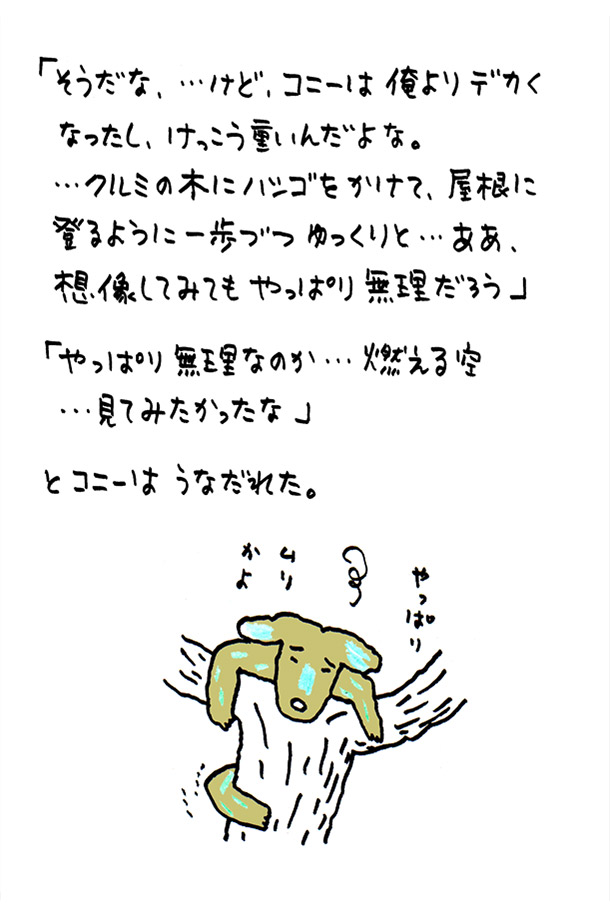 「そうだな、…けど、コニーは俺よりデカく
なったし、けっこう重いんだよな。
…クルミの木にハシゴをかけて、屋根に
登るように一歩づつゆっくりと…ああ、
想像してみてもやっぱり無理だろう」
「やっぱり無理なのか…燃える空
…見てみたかったな」
とコニーはうなだれた。
やっぱり
ムリ
かよ